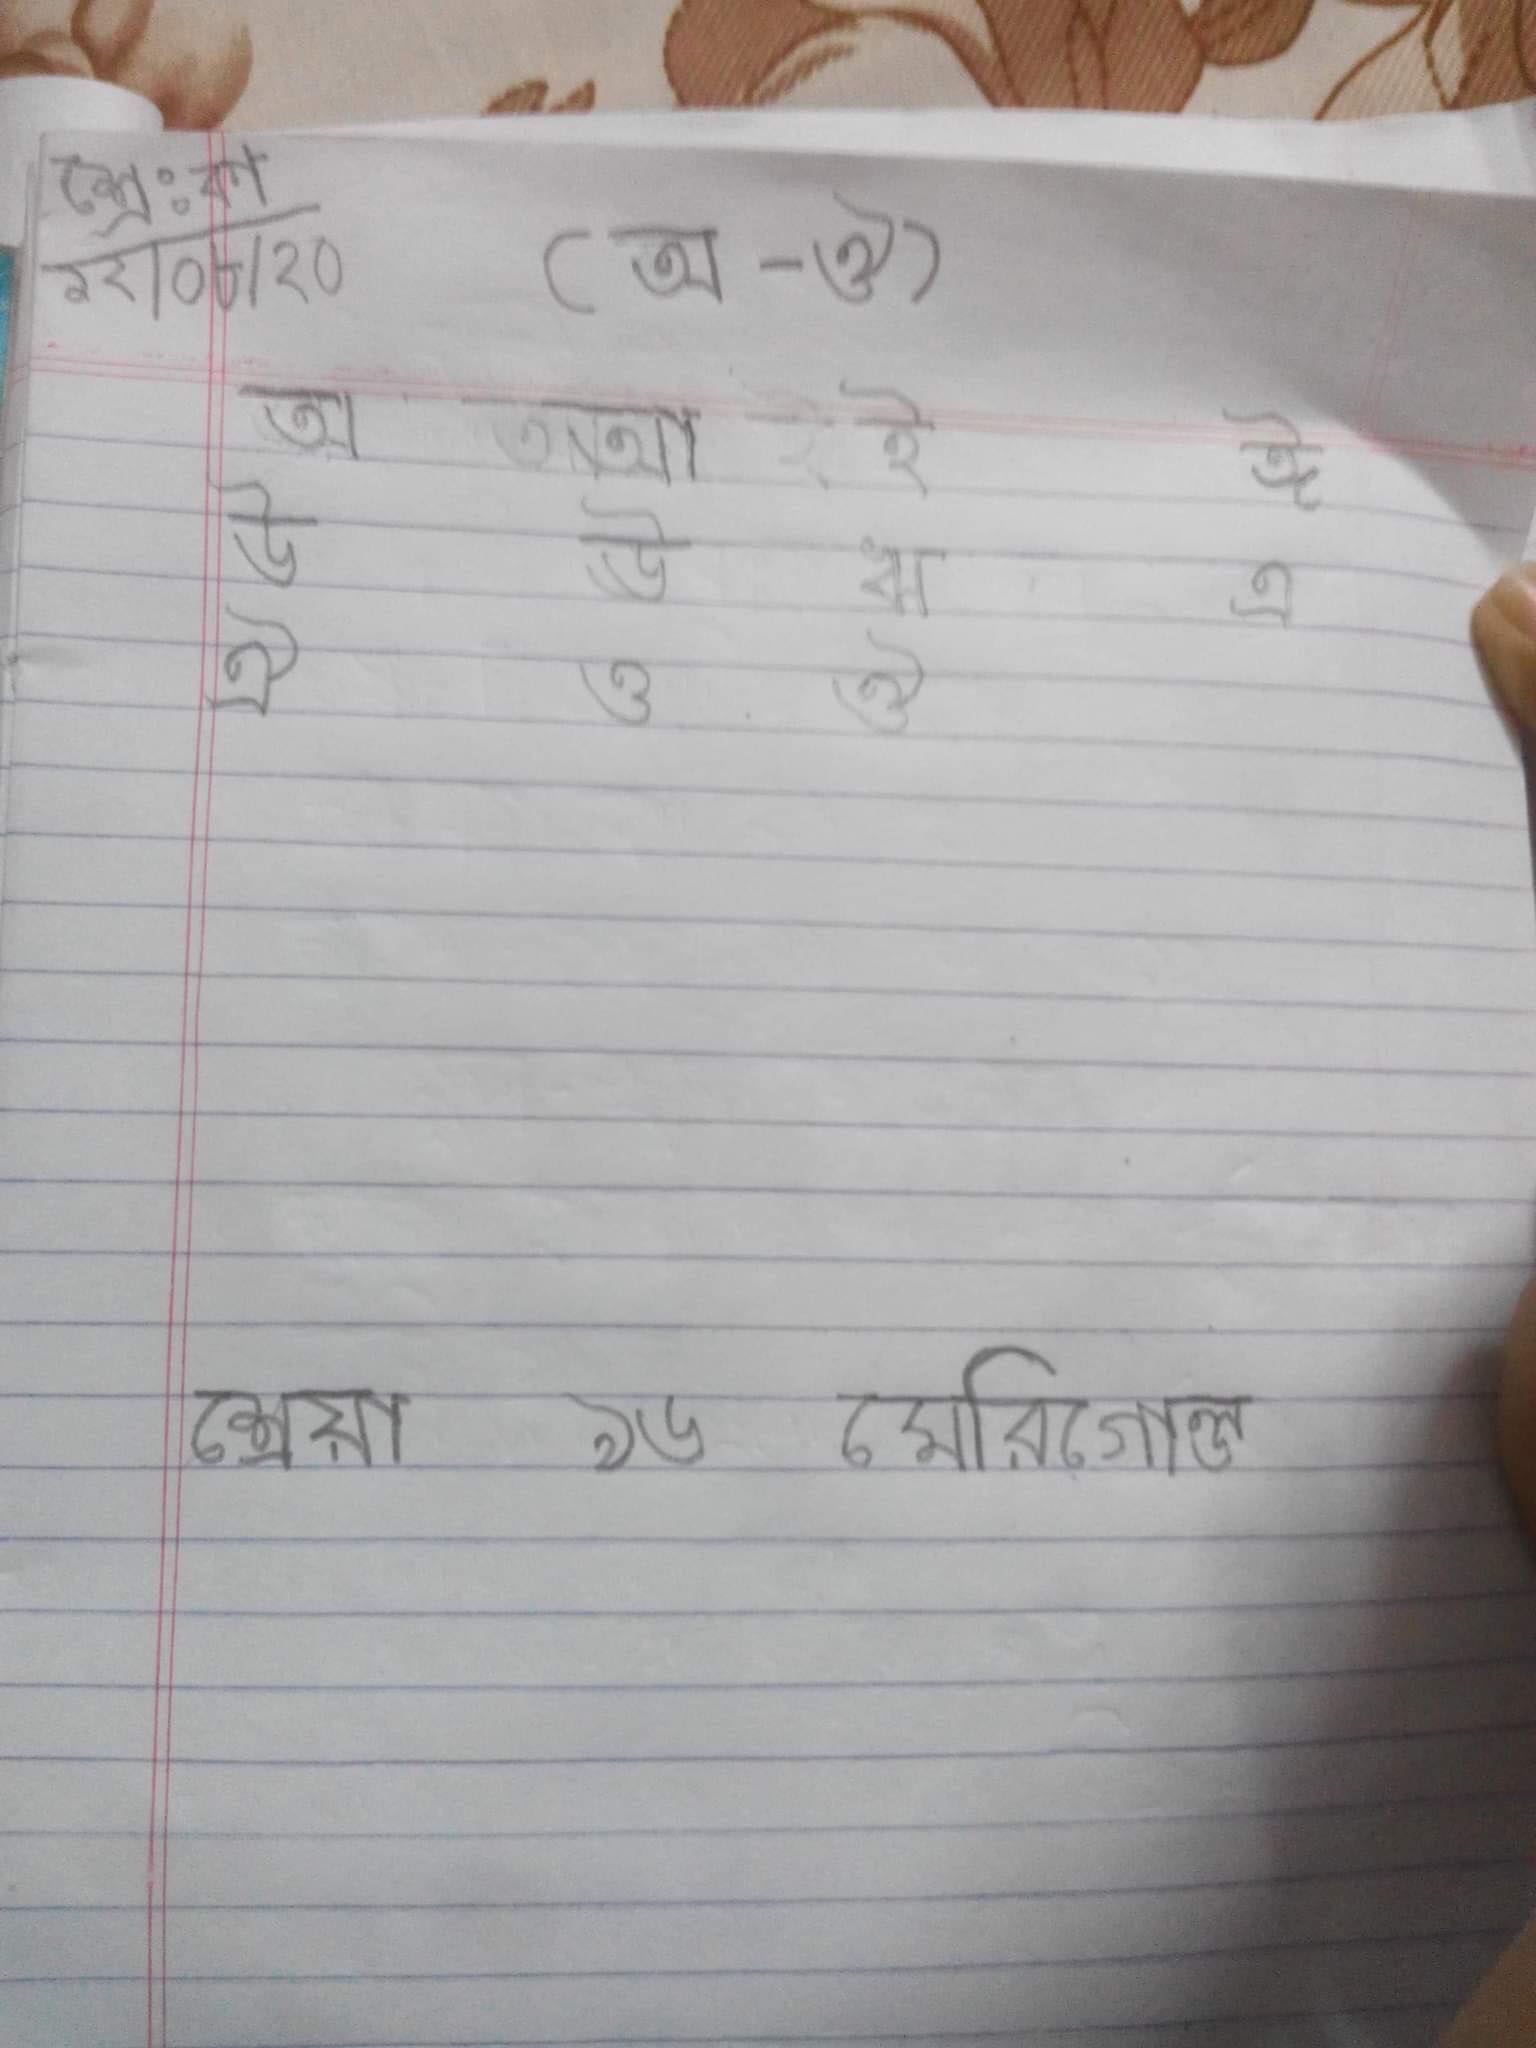 শ্রে:কা
২২/০৮/২০
(অ - ঔ)
অ আ ই ঈ
উ ঊ ঋ এ
ঐ ও ঔ
শ্রেয়া ১৬ মেরিগোল্ড